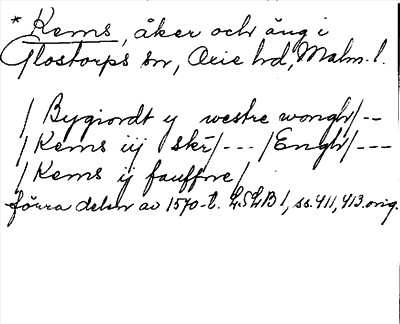 * Kems, åker och äng i
Glostorps sn, Oxie hd, Malm. l.
/ Bygiordt y westre wongh/--
/ Kems iij skr̄/--- /Engh/---
/ Kems ij fauffne/
förra delen av 1570-t. LSLB 1, ss. 411, 413. orig.